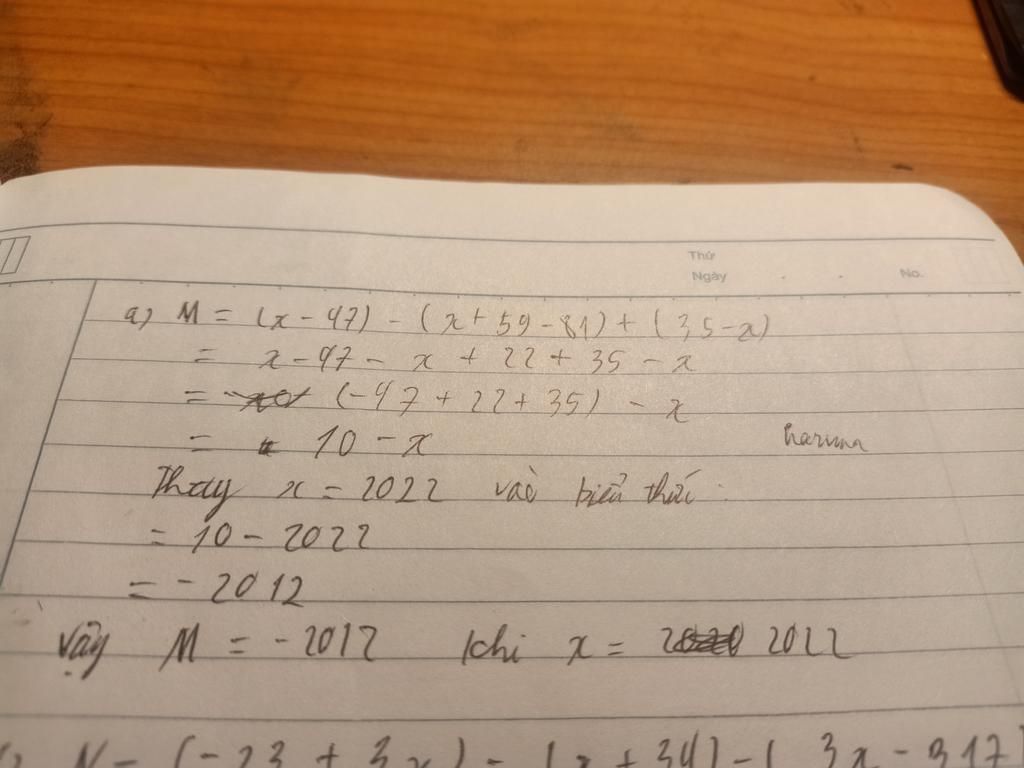 Thứ
Ngày . . No.
a) M = (x - 47) - (x + 59 - 81) + (35 - x)
= x - 47 - x + 22 + 35 - x
= (-47 + 22 + 35) - x
= 10 - x
Thay x = 2022 vào biểu thức
= 10 - 2022
= - 2012
Vậy M = - 2012 khi x = 2022
N = (-23 + 3x) - (x + 34) - (3x - 317)